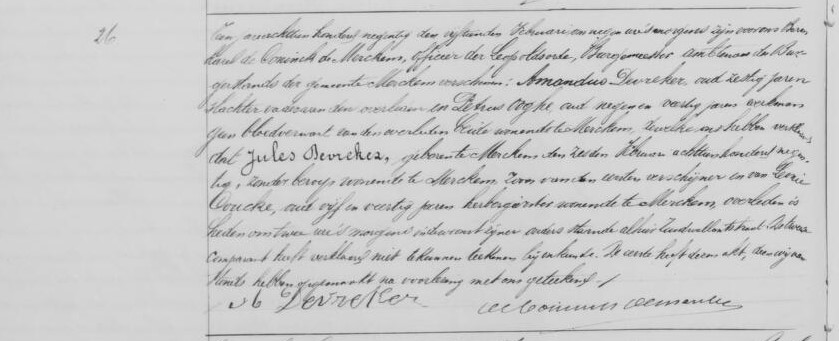 26
Jaar achttien honderd negentig den vijftienden Februari om negen ure 's morgens zijn voor ons Baron
Karel de Coninck de Merckem, officier der Leopoldsorde, Burgemeester Ambtenaar des Bur-
gerstands der gemeente Merckem verschenen: Amandus Devreker, oud zestig jaren
slachter vader van den overleden en Petrus Coghe oud negen en veertig jaren werkman
geen bloedverwant van den overleden beide wonende te Merckem, dewelke ons hebben verklaard
dat Jules Devreker, geboren te Merckem den zesden Februari achttien honderd negen-
tig, zonder beroep wonende te Merckem, zoon van den eersten verschijner en van
Coucke, oud vijf en veertig jaren herbergierster wonende te Merckem, overleden is
heden om twee ure 's morgens in de woonst zijner ouders staande alhier De tweede
comparant heeft verklaard niet te kunnen teekenen bij onkunde. De eerste heeft dezen akt, dien wij
hebben opgemaakt na voorlezing met ons geteekend /
A Devreker